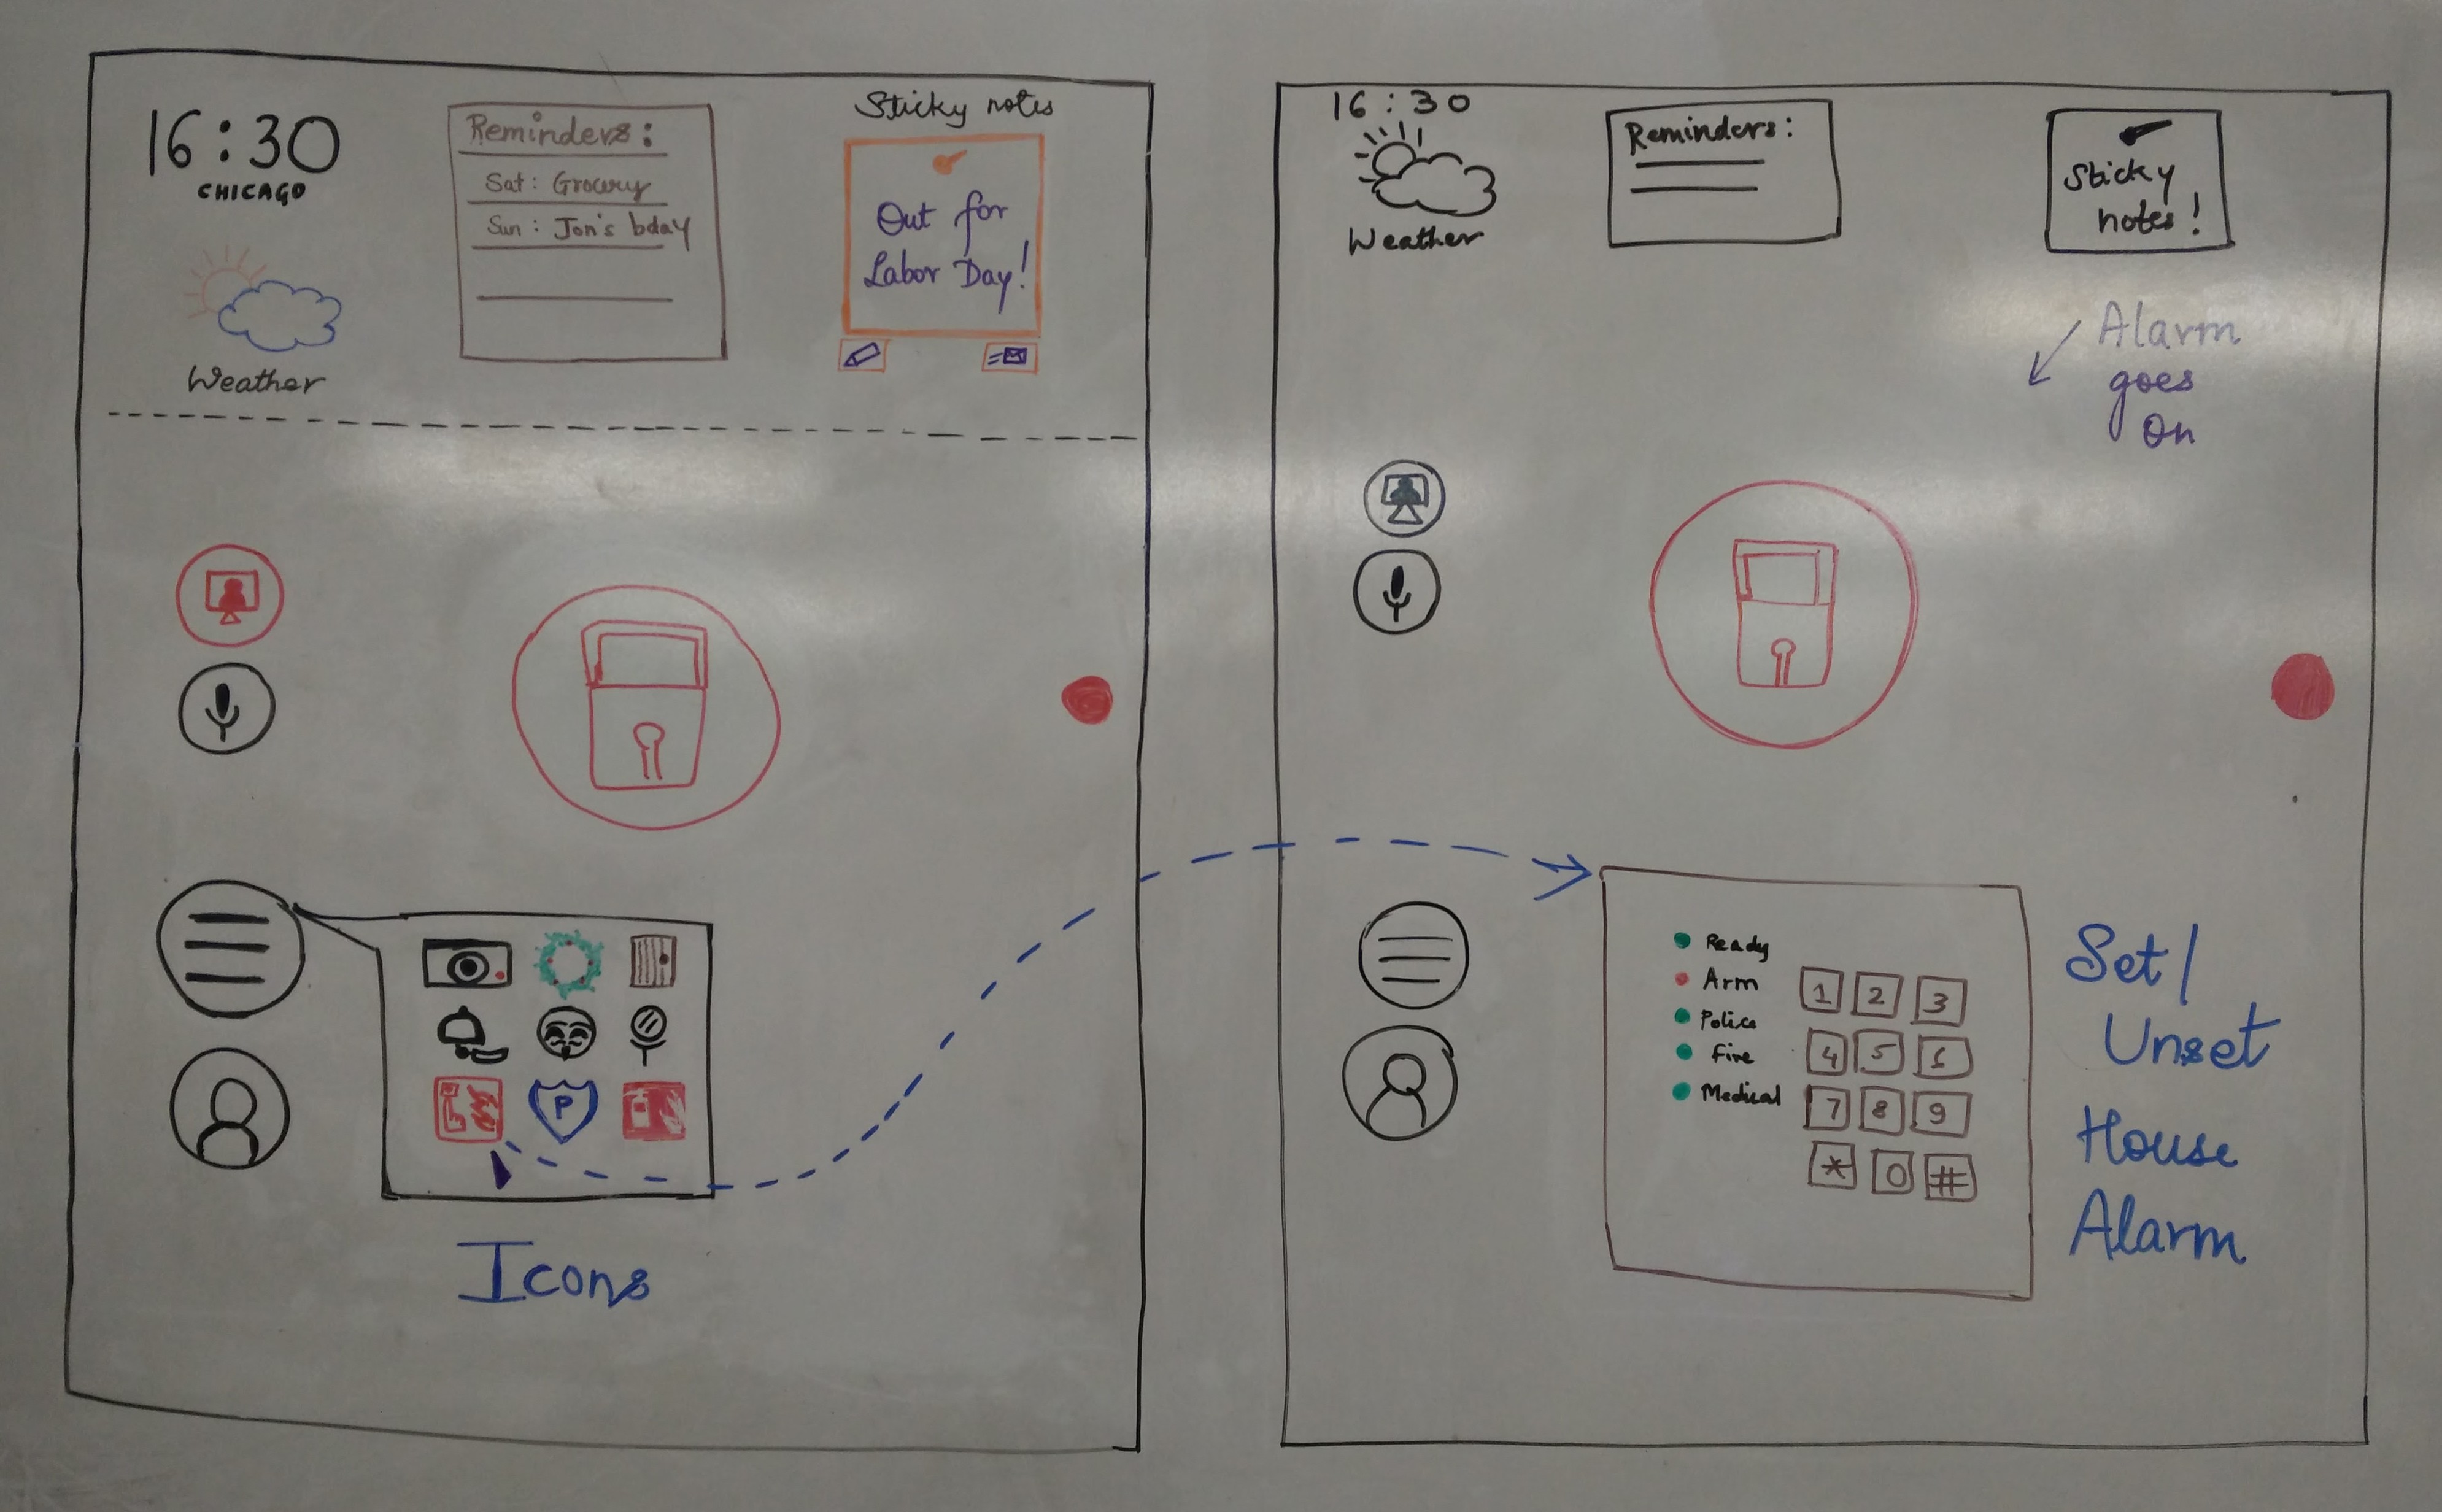 16:30
CHICAGO
Weather
Reminders:
Sat: Grocery
Sun: Jon's bday
Sticky notes
Out for
Labor Day!
P
Icons
16:30
Weather
Reminders:
Sticky
notes!
Alarm
goes
On
Ready
Arm
Police
Fire
Medical
1 2 3
4 5 6
7 8 9
* 0 #
Set/
Unset
House
Alarm